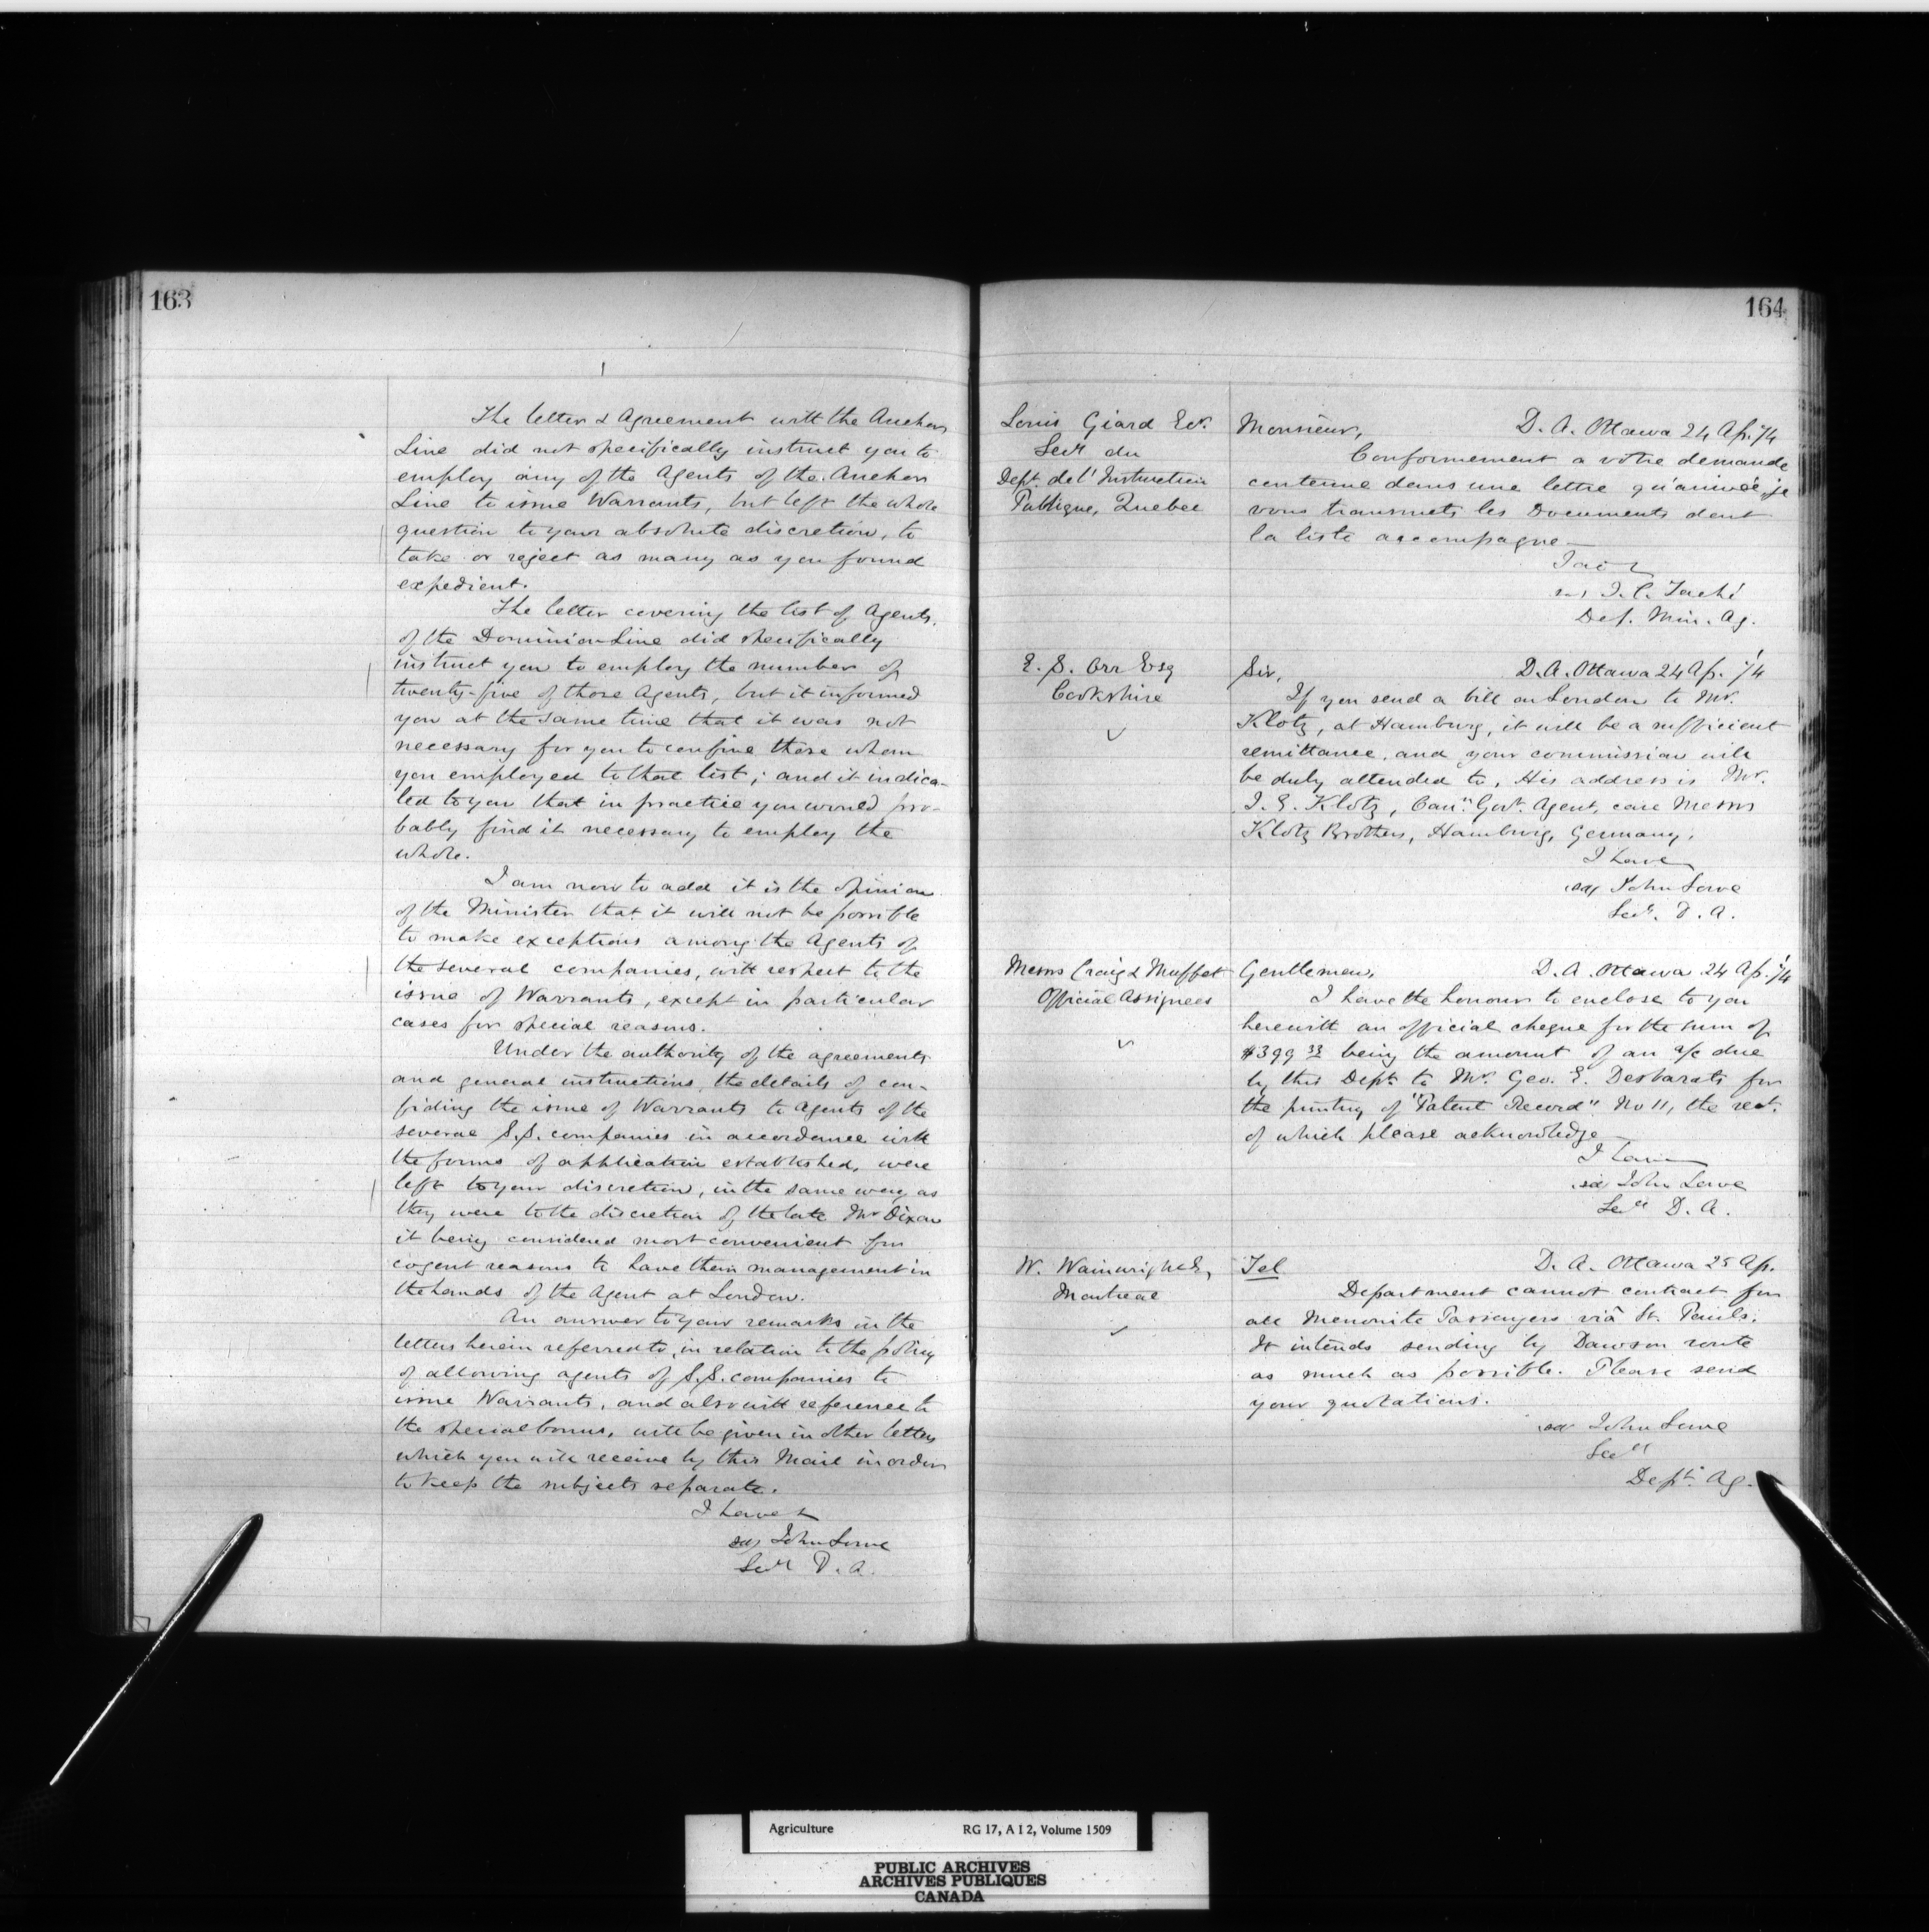 163
The letter & Agreement with the Anchor
Line did not specifically instruct you to
employ any of the Agents of the Anchor
Line to issue Warrants, but left the whole
question to your absolute discretion, to
take or reject as many as you found
expedient.
The letter covering the list of Agents,
of the Dominion Line did specifically
instruct you to employ the number of
twenty-five of those Agents, but it informed
you at the same time that it was not
necessary for you to confine those whom
you employed to that list; and it indica-
ted to you that in practice you would pro-
bably find it necessary to employ the
whole.
I am now to add it is the opinion
of the Minister that it will not be possible
to make exceptions among the Agents of
the several companies, with respect to the
issue of Warrants, except in particular
cases for special reasons.
Under the authority of the agreements
and general instructions, the details of con-
fiding the issue of Warrants to Agents of the
several S.S. companies in accordance with
the forms of application established, were
left to your discretion, in the same way as
they were to the discretion of the late Mr Dixon
it being considered most convenient for
cogent reasons to have their management in
the hands of the Agent at London.
An answer to your remarks in the
letters herein referred to, in relation to the policy
of allowing agents of S.S. companies to
issue Warrants, and also with reference to
the special bonus, will be given in other letters
which you will receive by this Mail in order
to keep the subjects separate.
I have &
sd, John Lowe
Secy D. A.
164
Louis Giard Ecr.
Secy du
Dept. de l'Instruction
Publique, Quebec
Monsieur, D. A. Ottawa 24 Ap. '74
Conformement a vôtre demande
contenue dans une lettre je
vous transmets les Documents dont
la liste accompagne
J'ai &
sd, J. C. Taché
Dep. Min. Ag.
E. S. Orr Esq
Cookshire
Sir, D. A. Ottawa 24 Ap. '74
If you send a bill on London to Mr.
Klotz, at Hamburg, it will be a sufficient
remittance, and your commission will
be duly attended to. His address is Mr.
J. E. Klotz, Cann Govt. Agent, care Messrs
Klotz Brothers, Hamburg, Germany.
I have
sd, John Lowe
Secy. D. A.
Messrs Craig & Moffat
Official Assignees
Gentlemen, D. A. Ottawa 24 Ap. '74
I have the honour to enclose to you
herewith an official cheque for the sum of
$399 33 being the amount of an a/c due
by this Dept. to Mr. Geo. E. Desbarats for
the printing of "Patent Record" No 11, the rect.
of which please acknowledge
I have
sd, John Lowe
Secy D. A.
W. Wainwright Es,
Montreal
Tel D. A. Ottawa 25 Ap.
Department cannot contract for
all Menonite Passengers viâ St. Pauls.
It intends sending by Dawson route
as much as possible. Please send
your quotations.
sd John Lowe
Secy
Dept. Ag.
Agriculture RG 17, A I 2, Volume 1509
PUBLIC ARCHIVES
ARCHIVES PUBLIQUES
CANADA